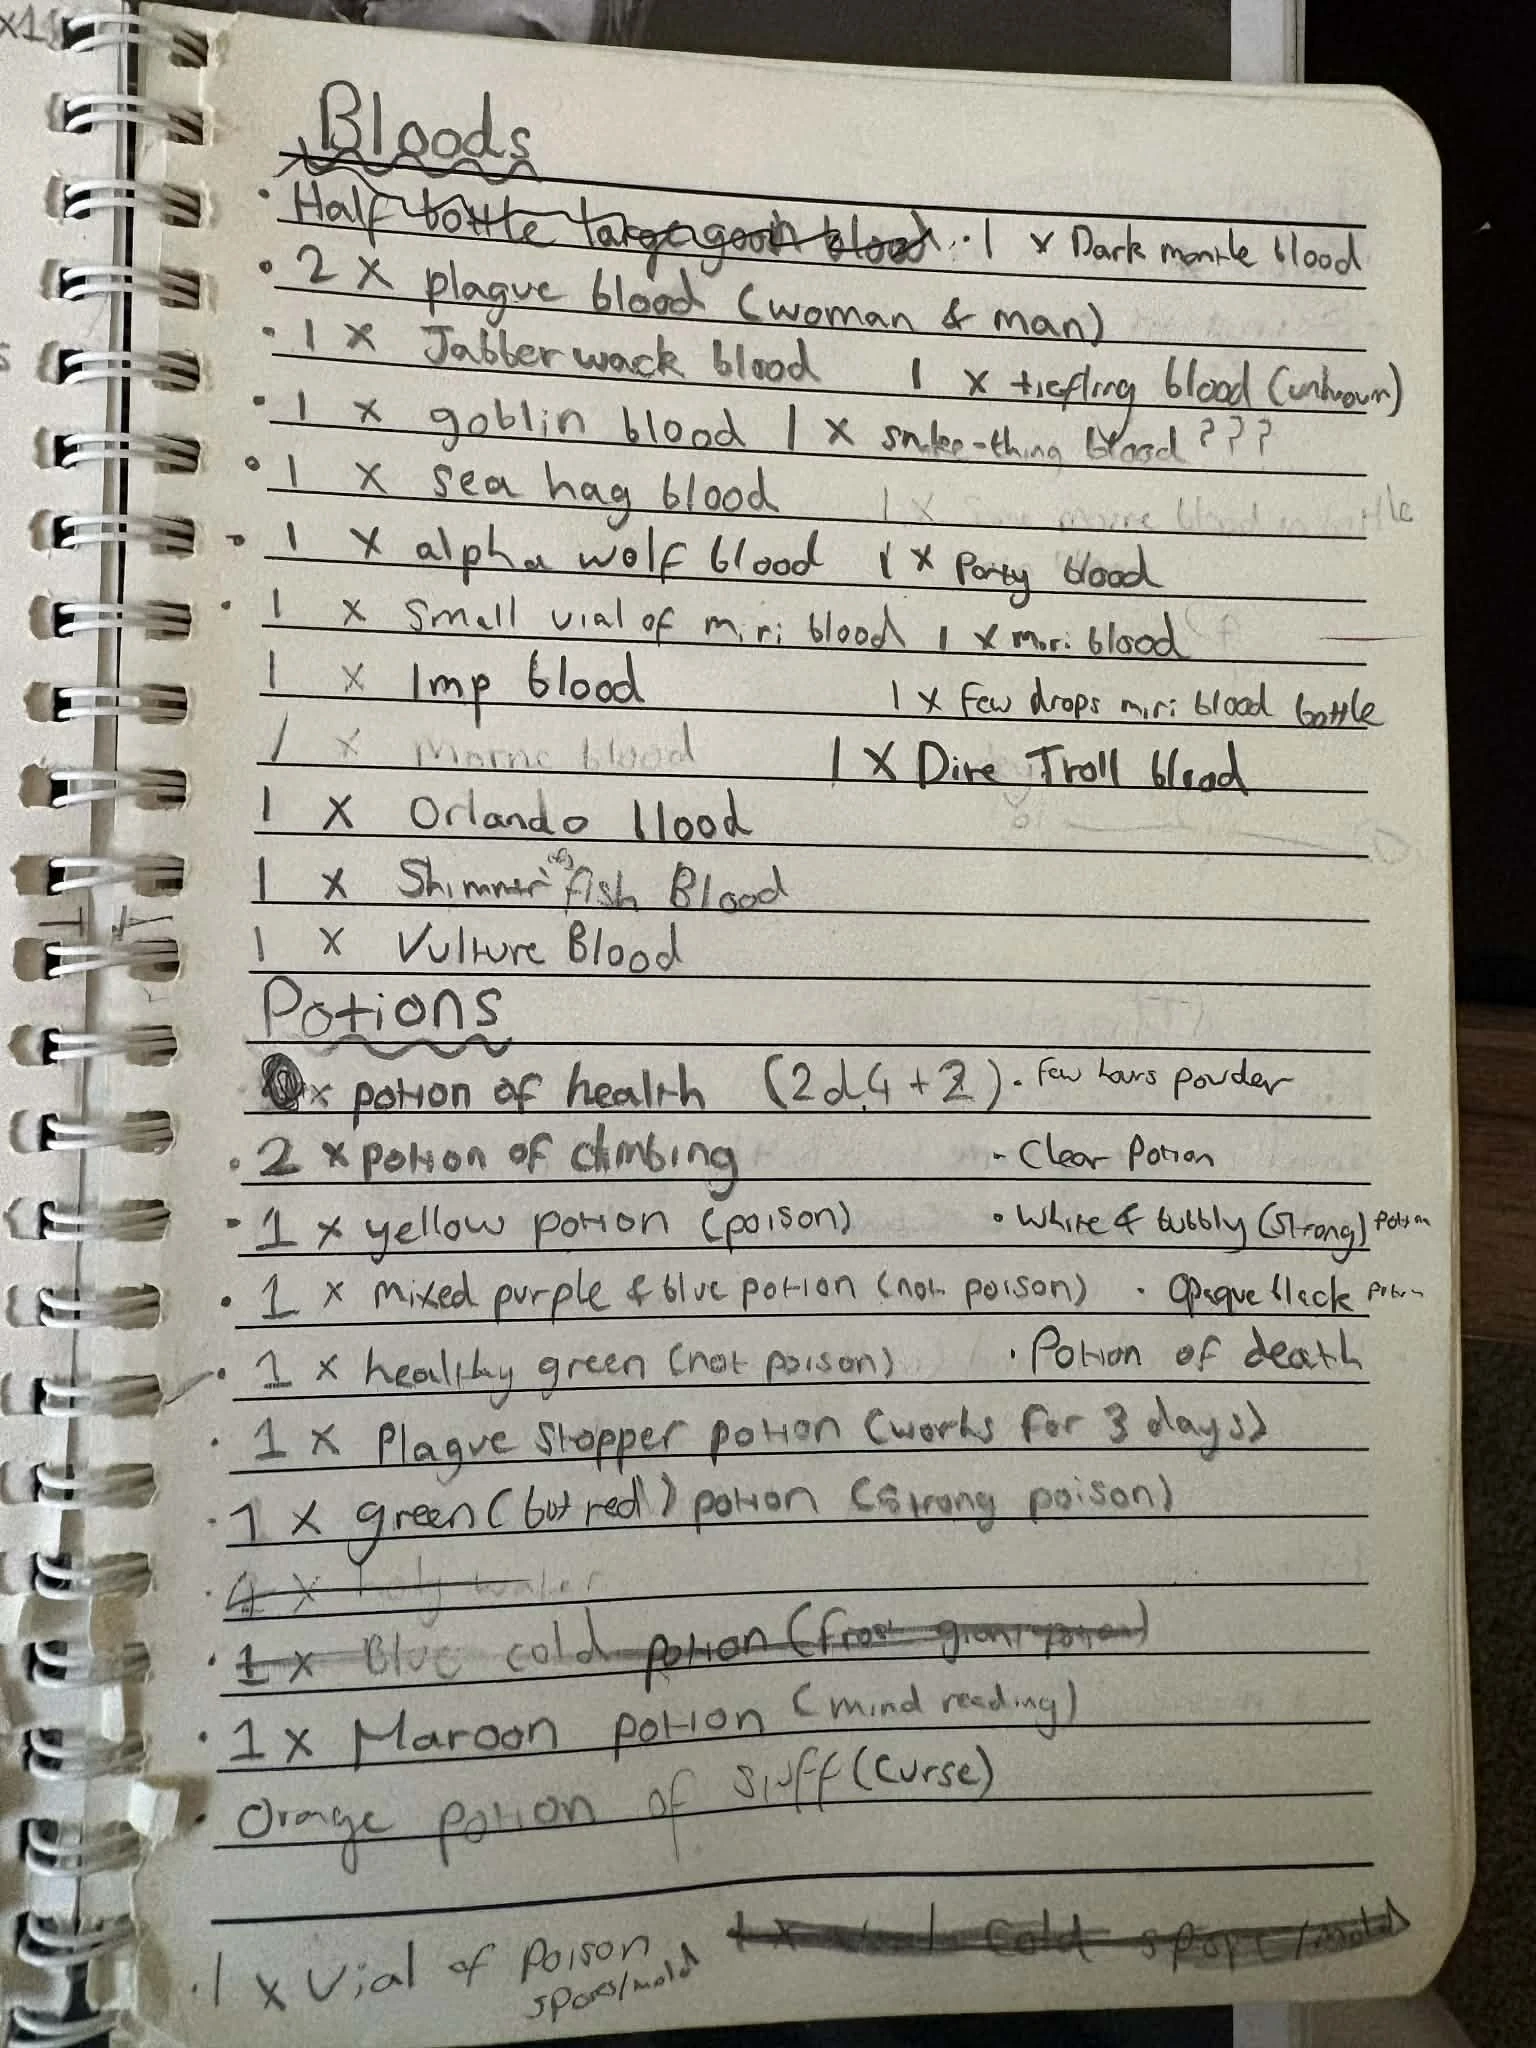 x1
Bloods
· Half bottle large goon blood · 1 x Dark mantle blood
· 2 x plague blood (woman & man)
· 1 x Jabberwack blood 1 x tiefling blood (unknown)
· 1 x goblin blood 1 x snake-thing blood ???
· 1 x sea hag blood 1 x more blood in bottle
· 1 x alpha wolf blood 1 x Party blood
· 1 x small vial of miri blood 1 x miri blood
1 x Imp blood 1 x Few drops miri blood bottle
1 x blood 1 x Dire Troll blood
1 x Orlando blood
1 x Shimmer fish Blood
1 x Vulture Blood
Potions
x potion of health (2d4+2) · Few hours powder
· 2 x potion of climbing · Clear Potion
· 1 x yellow potion (poison) · White & bubbly (strong) Potion
· 1 x mixed purple & blue potion (not poison) · Opaque black Potion
· 1 x healthy green (not poison) · Potion of death
· 1 x Plague Stopper potion (works for 3 days)
· 1 x green (but red) potion (strong poison)
· 4 x holy water
· 1 x Blue cold potion (frost giant potion)
· 1 x Maroon potion (mind reading)
· Orange potion of stuff (curse)
· 1 x vial of Poison spores/mold 1 x vial cold spore/mold